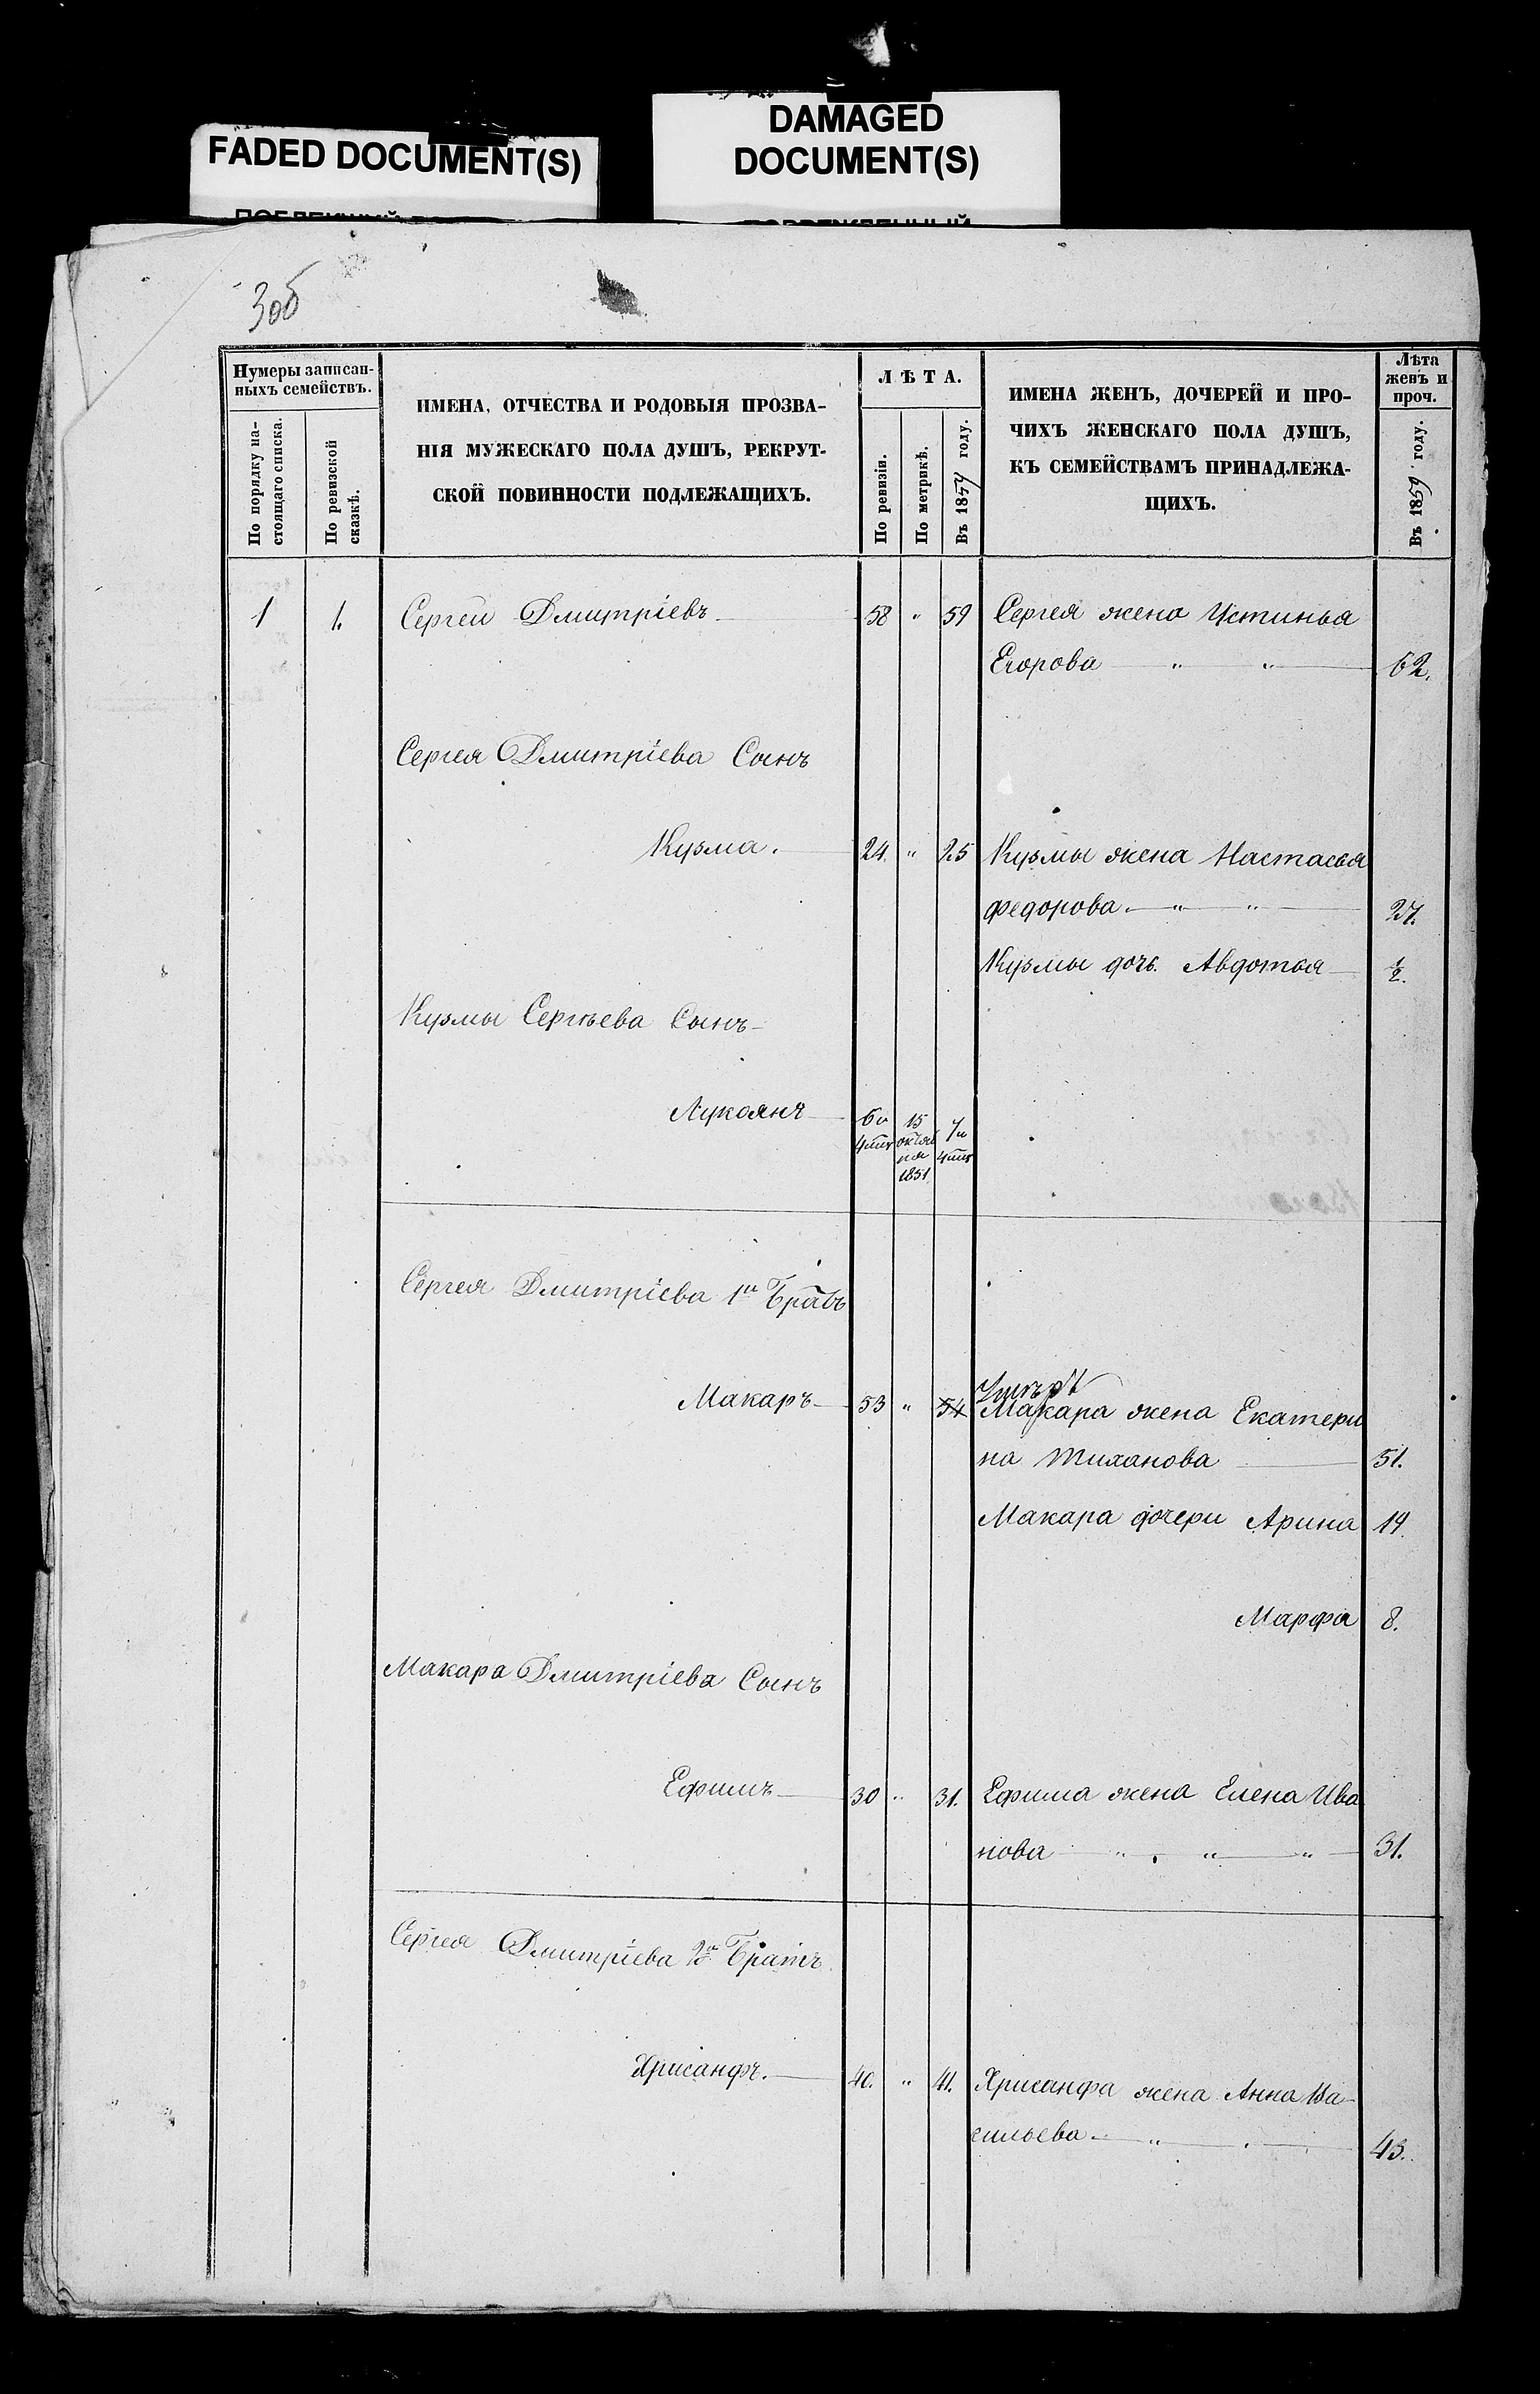 FADED DOCUMENT(S)
DAMAGED
DOCUMENT(S)
306
Нумеры записан-
ныхъ семействъ.
По порядку на-
стоящаго списка.
По ревизской
сказкѣ.
ИМЕНА, ОТЧЕСТВА И РОДОВЫЯ ПРОЗВА-
НІЯ МУЖЕСКАГО ПОЛА ДУШЪ, РЕКРУТ-
СКОЙ ПОВИННОСТИ ПОДЛЕЖАЩИХЪ.
ЛѢТА.
По ревизіи.
По метрикѣ.
Въ 1859 году.
ИМЕНА ЖЕНЪ, ДОЧЕРЕЙ И ПРО-
ЧИХЪ ЖЕНСКАГО ПОЛА ДУШЪ,
КЪ СЕМЕЙСТВАМЪ ПРИНАДЛЕЖА-
ЩИХЪ.
Лѣта
женъ и
проч.
Въ 1859 году.
1 1. Сергей Дмитріевъ 58 " 59 Сергея жена Устинья
Егорова " " 62.
Сергея Дмитріева Сынъ
Кузма. 24. " 25 Кузмы жена Настасья
Федорова " " 27.
Кузмы дочь. Авдотья ½.
Кузмы Сергѣева Сынъ
Лукоянъ 6и 15 7и
4мѣ октяб 4мѣ
ря
1851
Сергея Дмитріева 1й Братъ
Умеръ
Макаръ 53 " 54 Макара жена Екатери
на Тиханова 51.
Макара дочери Арина 14
Марфа 8.
Макара Дмитріева Сынъ
Ефимъ 30 " 31. Ефима жена Елена Ива
нова " " " 31.
Сергея Дмитріева 2й Братъ
Хрисанфъ. 40. " 41. Хрисанфа жена Анна Ва-
сильева " 43.